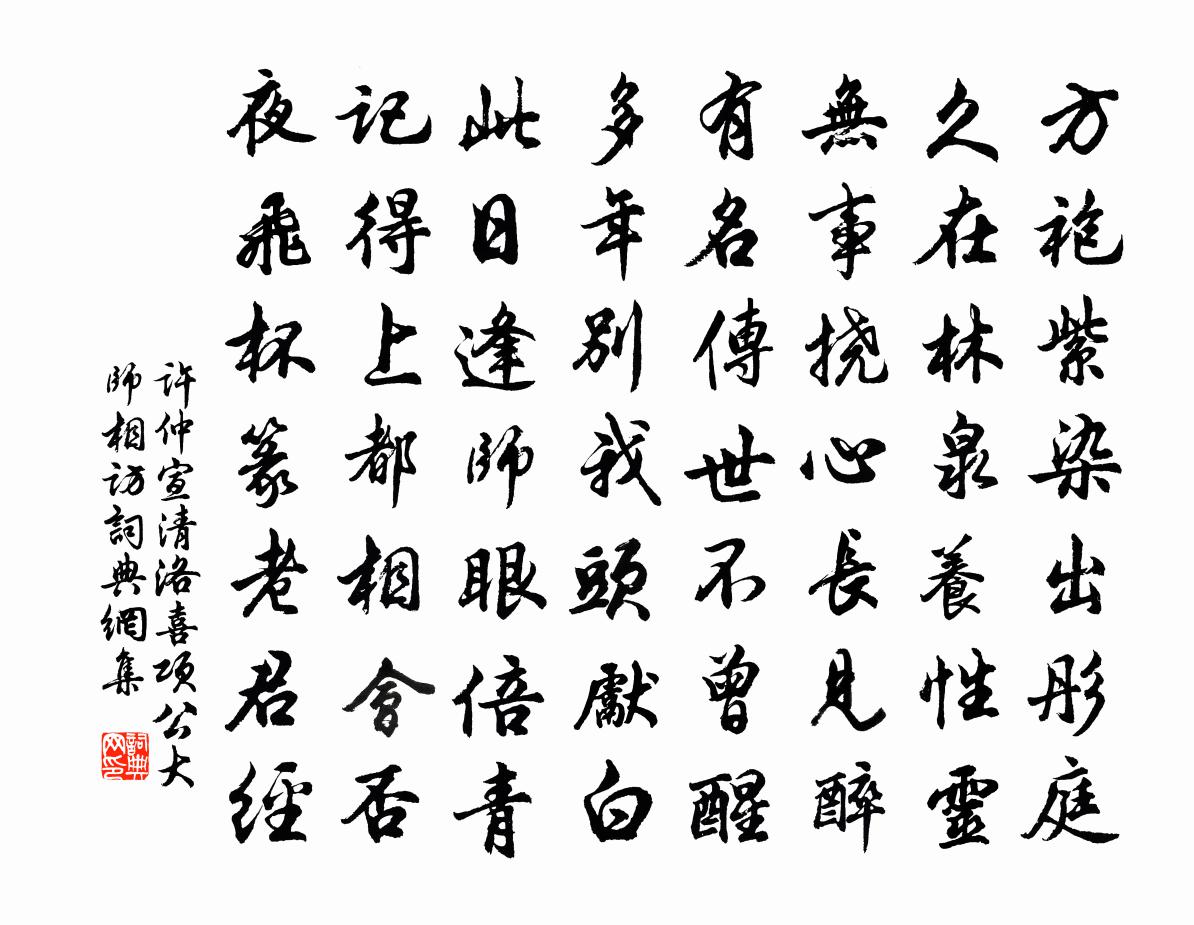 方袍紫染出彤庭
久在林泉養性靈
無事撓心長見醉
有名傳世不曾醒
多年別我頭獻白
此日逢師眼倍青
記得上都相會否
夜飛杯篆老君經
許仲宣清洛喜項公大
師相訪詞典網集
詞典
网印